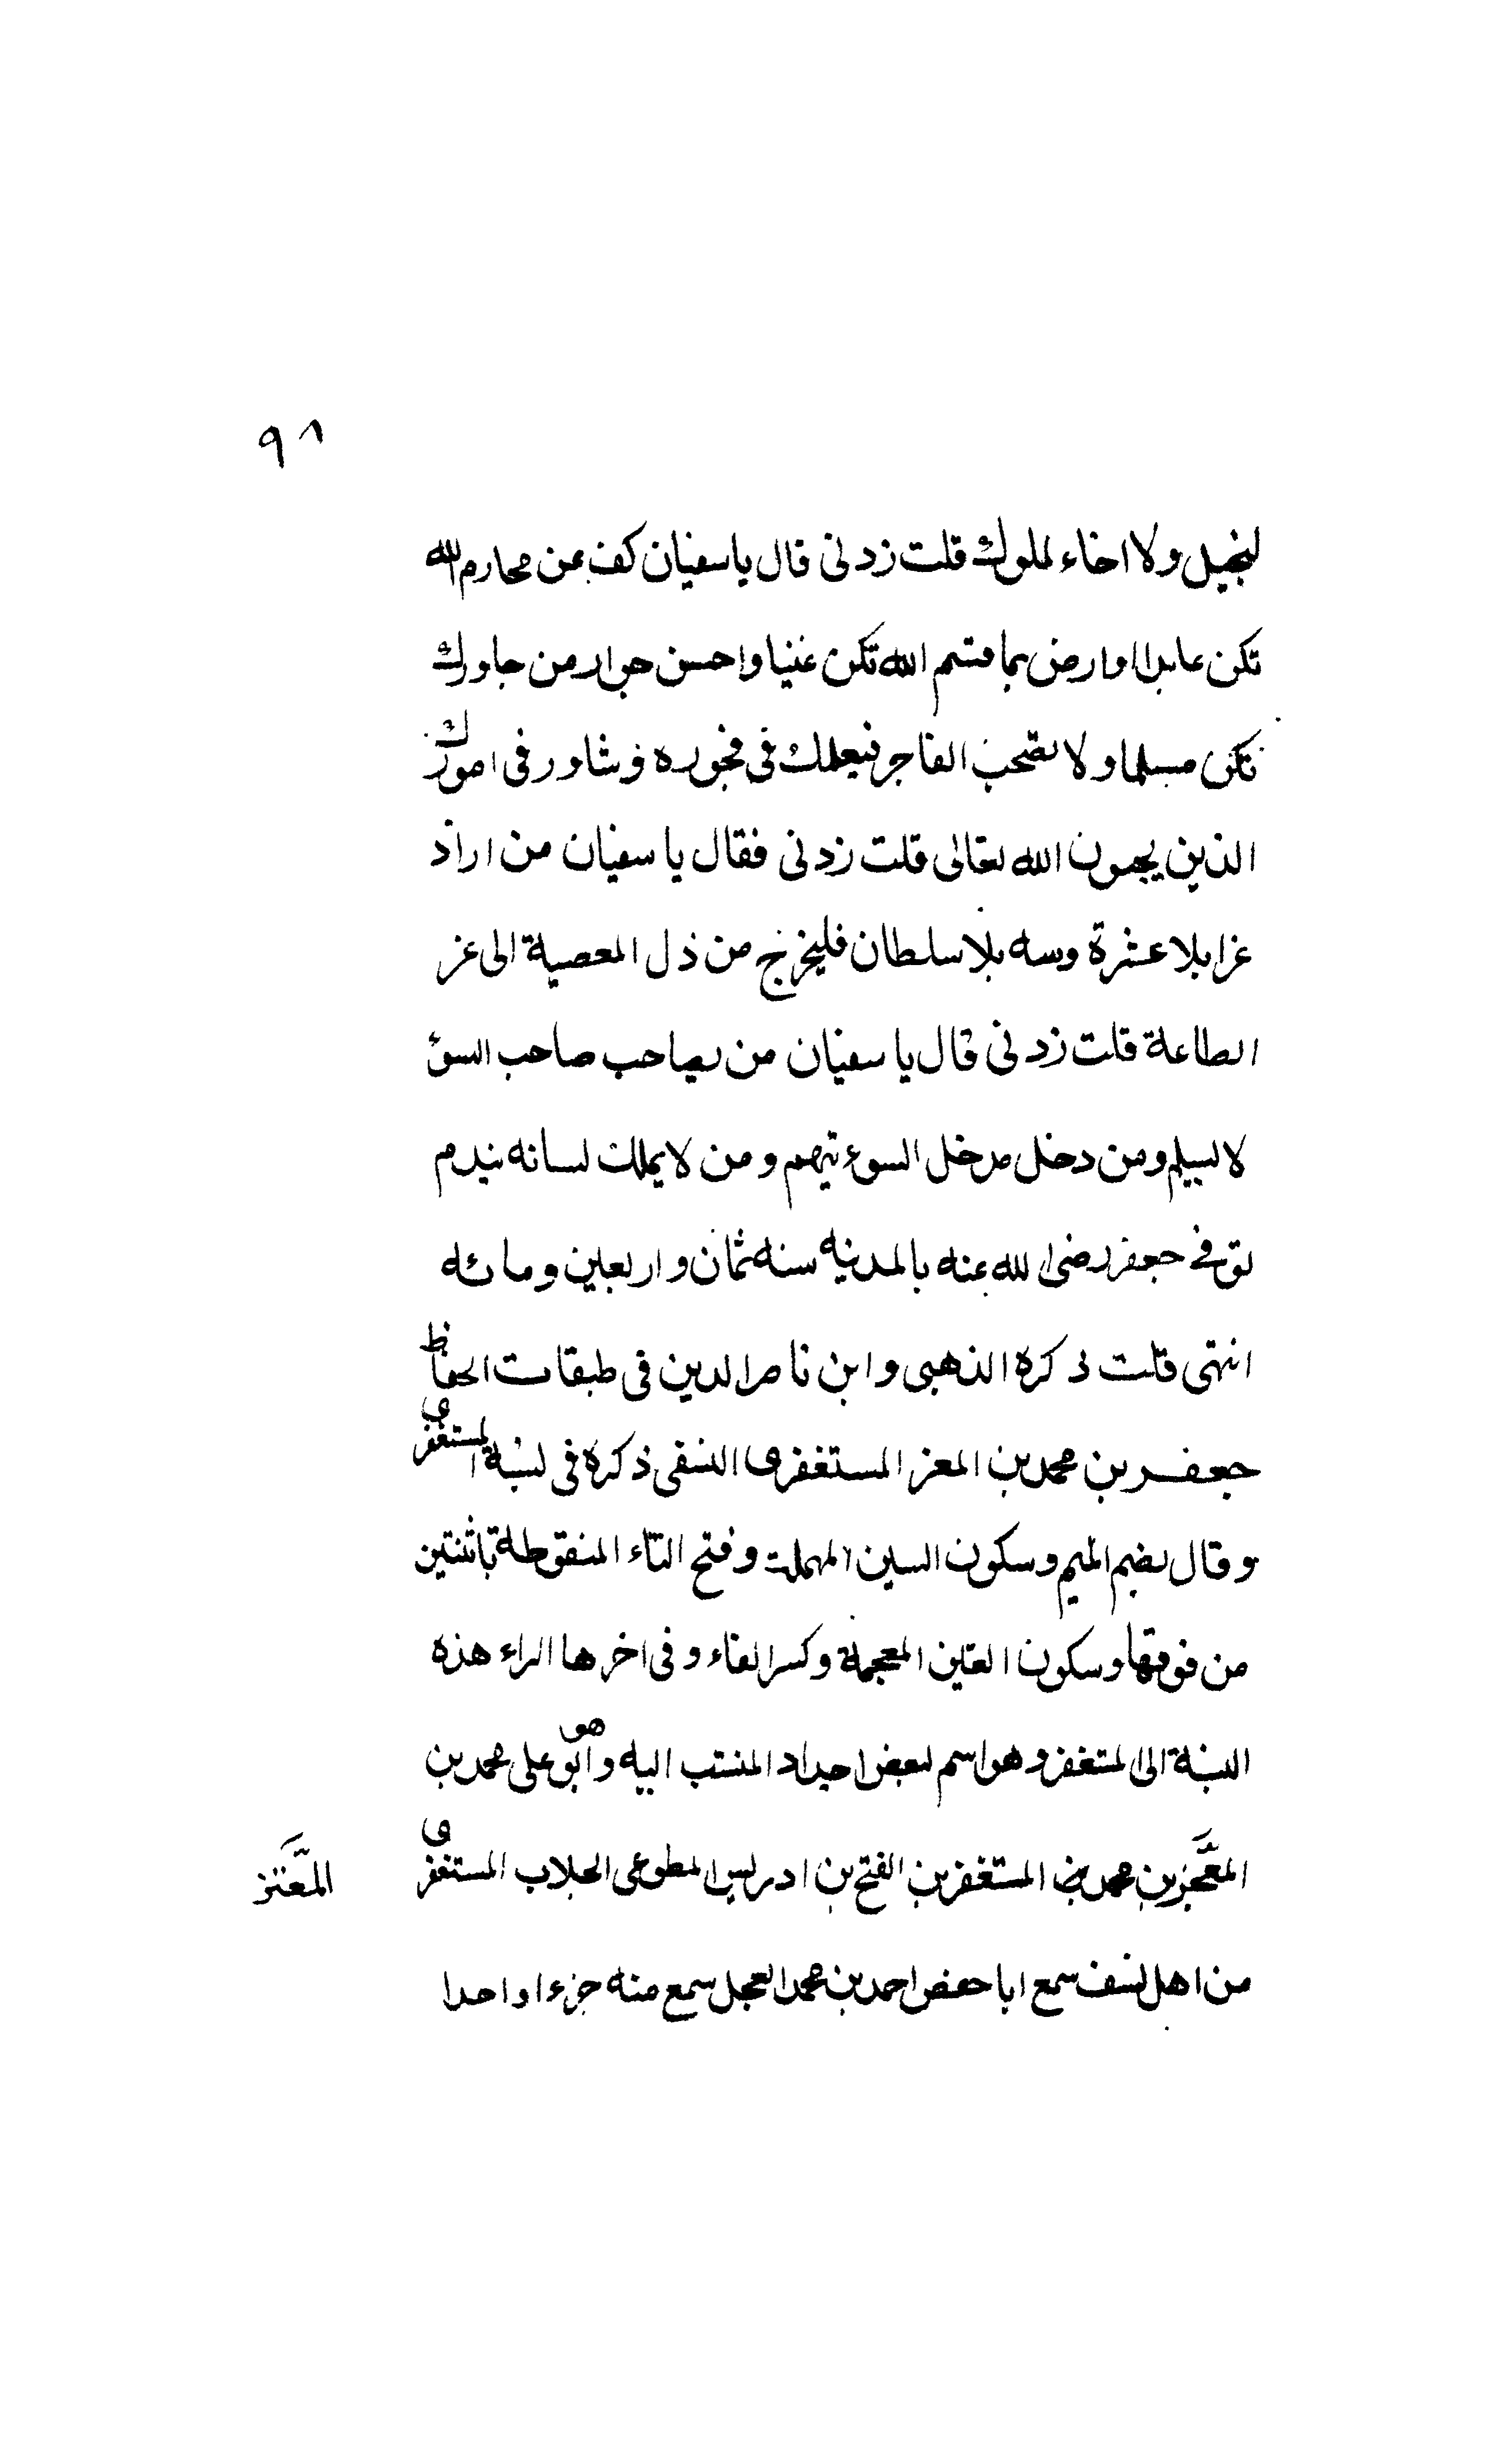 ٩٨
لبخيل ولا اخاء لملوك قلت زدنى قال يا سفيان كف عن محارم الله
تكن عابدا وارض بما قسم الله تكن غنيا واحسن جوار من جاورك
تكن مسلما ولا تصحب الفاجر فيعلمك فى فجوره وشاور فى امورك
الذين يحبون الله تعالى قلت زدنى فقال يا سفيان من اراد
عزا بلا عشرة وسه بلا سلطان فليخرج من ذل المعصية الى عز
الطاعة قلت زدنى قال يا سفيان من يصاحب صاحب السوء
لا يسلم ومن دخل مدخل السوء يتهم ومن لا يملك لسانه يندم
توفى جعفر رضى الله عنه بالمدينه سنه ثمان واربعين ومائه
انتهى قلت ذكره الذهبى وابن ناصر الدين فى طبقات الحفاظ
جعفر بن محمد بن المعز المستغفرى النسفى ذكره فى نسبة المستغفرى
وقال بضم الميم وسكون السين المهملة وفتح التاء المنقوطة باثنتين
من فوقها وسكون الغين المعجمة وكسر الفاء وفى اخرها الراء هذه
النسبة الى المستغفر وهو اسم لبعض اجداد المنتسب اليه وهو ابو على محمد بن
المعتز بن محمد بن المستغفر بن الفتح بن ادريس المطوعى الجلاب المستغفرى
المعتز
من اهل نسف سمع ابا حفص احمد بن محمد العجل سمع منه جزءا واحدا